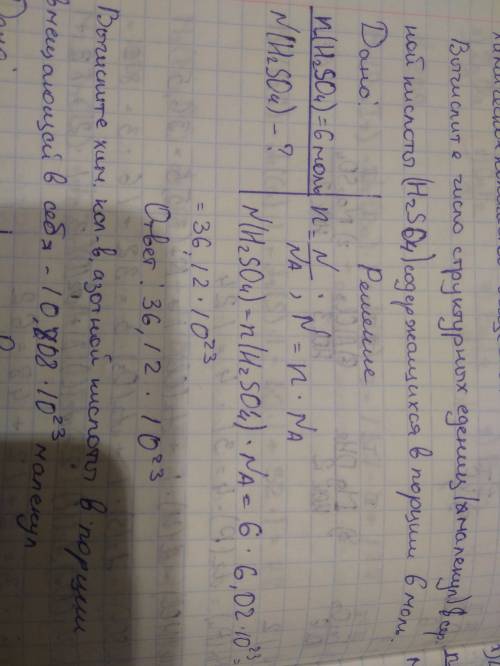 Вычислите число структурных едениц (малекул) в сер
ной кислоты (H₂SO₄) содержащихся в порции 6 моль.
Дано: Решение
n(H₂SO₄) = 6 моль n = N/NA ; N = n · NA
N(H₂SO₄) - ? N(H₂SO₄) = n(H₂SO₄) · NA = 6 · 6,02 · 10²³ =
= 36,12 · 10²³
Ответ: 36,12 · 10²³
Вычислите хим. кол-в, азотной кислоты в порции
вмещающей в себя - 10,808 · 10²³ малекул